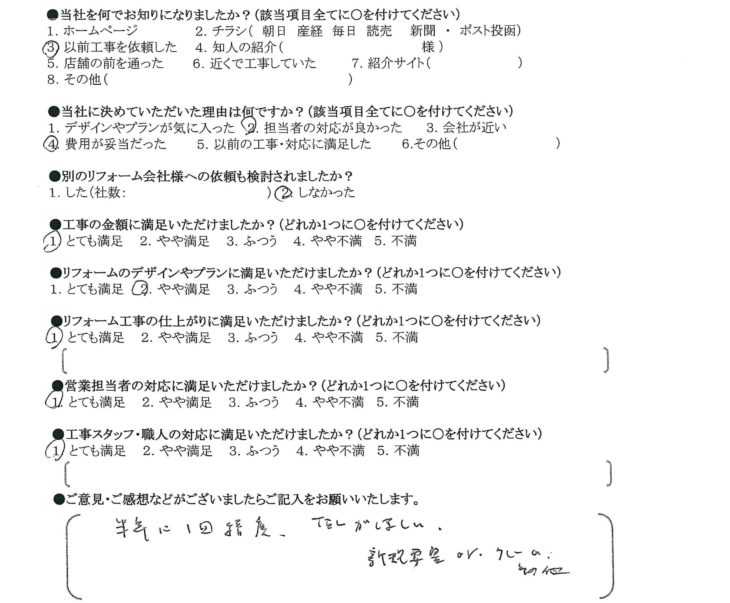 ●当社を何でお知りになりましたか？(該当項目全てに〇を付けてください)
1. ホームページ 2. チラシ( 朝日 産経 毎日 読売 新聞 ・ ポスト投函)
③ 以前工事を依頼した 4. 知人の紹介( 様)
5. 店舗の前を通った 6. 近くで工事していた 7. 紹介サイト( )
8. その他( )
●当社に決めていただいた理由は何ですか？(該当項目全てに〇を付けてください)
1. デザインやプランが気に入った ②. 担当者の対応が良かった 3. 会社が近い
④. 費用が妥当だった 5. 以前の工事・対応に満足した 6.その他( )
●別のリフォーム会社様への依頼も検討されましたか？
1. した(社数: ) ②. しなかった
●工事の金額に満足いただけましたか？(どれか1つに〇を付けてください)
① とても満足 2. やや満足 3. ふつう 4. やや不満 5. 不満
●リフォームのデザインやプランに満足いただけましたか？(どれか1つに〇を付けてください)
1. とても満足 ②. やや満足 3. ふつう 4. やや不満 5. 不満
●リフォーム工事の仕上がりに満足いただけましたか？(どれか1つに〇を付けてください)
① とても満足 2. やや満足 3. ふつう 4. やや不満 5. 不満
●営業担当者の対応に満足いただけましたか？(どれか1つに〇を付けてください)
①. とても満足 2. やや満足 3. ふつう 4. やや不満 5. 不満
●工事スタッフ・職人の対応に満足いただけましたか？(どれか1つに〇を付けてください)
① とても満足 2. やや満足 3. ふつう 4. やや不満 5. 不満
●ご意見・ご感想などがございましたらご記入をお願いいたします。
半年に1回程度、TELがほしい。
or. クレーム.
その他